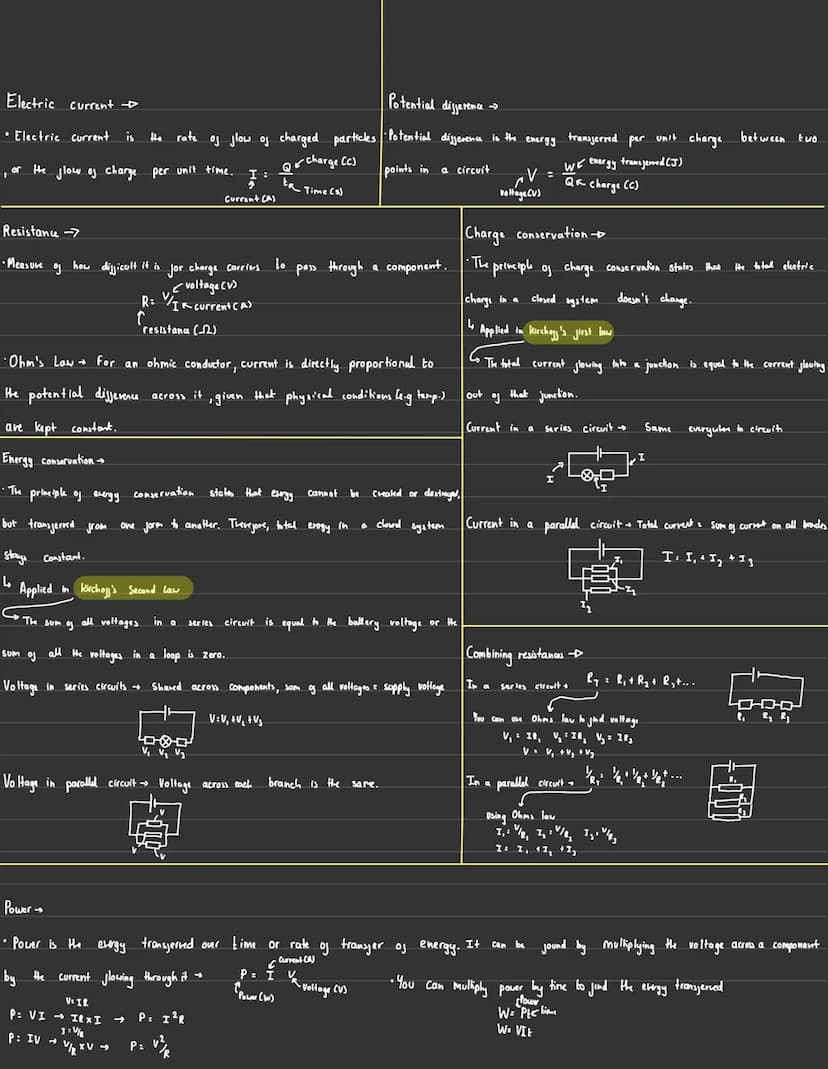 Electric current →
• Electric current is the rate of flow of charged particles
, or the flow of charge per unit time. I = Q/t
charge (C)
Time (s)
Current (A)
Potential difference →
• Potential difference is the energy transferred per unit charge between two
points in a circuit V = W/Q
energy transferred (J)
charge (C)
voltage (V)
Resistance →
• Measure of how difficult it is for charge carriers to pass through a component.
voltage (V)
R = V/I current (A)
resistance (Ω)
• Ohm's Law → For an ohmic conductor, current is directly proportional to
the potential difference across it, given that physical conditions (e.g temp.)
are kept constant.
Energy conservation →
• The principle of energy conservation states that energy cannot be created or destroyed,
but transferred from one form to another. Therefore, total energy in a closed system
stays constant.
↳ Applied in Kirchoff's Second Law
→ The sum of all voltages in a series circuit is equal to the battery voltage or the
sum of all the voltages in a loop is zero.
Voltage in series circuits → Shared across components, sum of all voltages = supply voltage
V = V₁ + V₂ + V₃
V₁ V₂ V₃
Voltage in parallel circuit → Voltage across each branch is the same.
V
V
V
Charge conservation →
• The principle of charge conservation states that the total electric
charge in a closed system doesn't change.
↳ Applied in Kirchoff's first law
→ The total current flowing into a junction is equal to the current flowing
out of that junction.
Current in a series circuit → Same everywhere in circuit
I
I
I
Current in a parallel circuit → Total current = sum of current on all branches
I = I₁ + I₂ + I₃
I₁
I₂
I₃
Combining resistances →
In a series circuit → R_T = R₁ + R₂ + R₃ + ...
R₁ R₂ R₃
You can use Ohms law to find voltage
V₁ = IR₁ V₂ = IR₂ V₃ = IR₃
V = V₁ + V₂ + V₃
In a parallel circuit → 1/R_T = 1/R₁ + 1/R₂ + 1/R₃ + ...
R₁
R₂
R₃
Using Ohms law
I₁ = V/R₁ I₂ = V/R₂ I₃ = V/R₃
I = I₁ + I₂ + I₃
Power →
• Power is the energy transferred over time or rate of transfer of energy. It can be found by multiplying the voltage across a component
by the current flowing through it → P = I V
Current (A)
Power (W)
Voltage (V)
• You can multiply power by time to find the energy transferred
Power
W = Pt time
W = VIt
V = IR
P = VI → IR × I → P = I²R
I = V/R
P = IV → V/R × V → P = V²/R